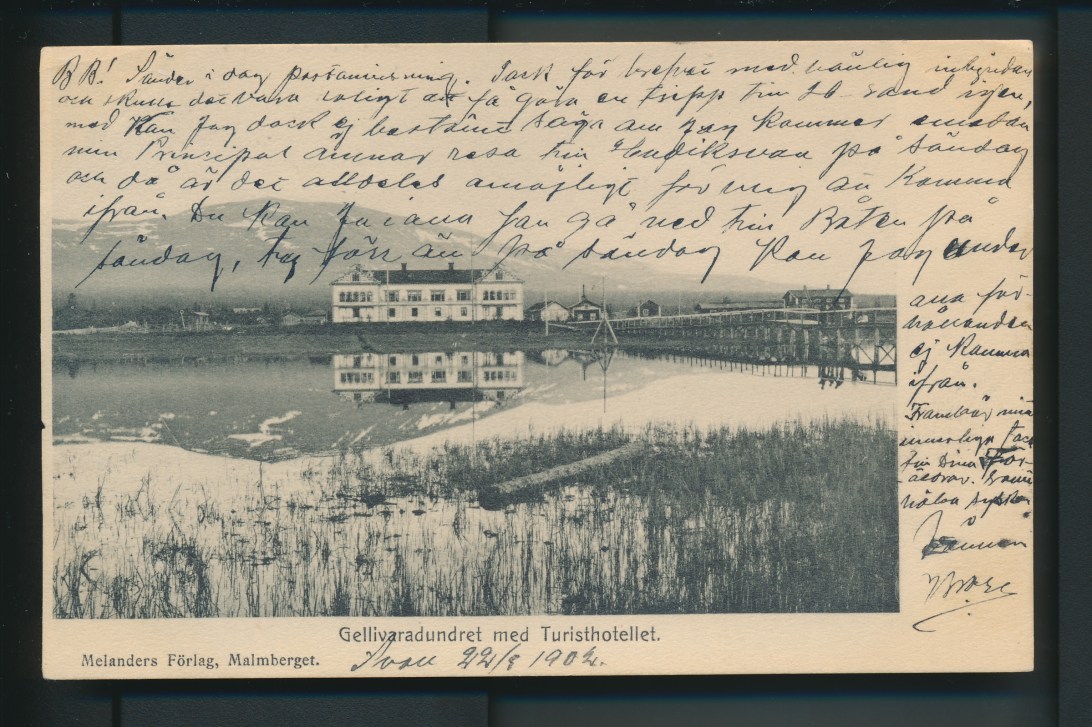 B B! Sänder i dag postanvisning. Tack för brefvet med vänlig inbjudan
och skulle det vara roligt att få göra en tripp till
med kan jag dock ej bestämt säga om jag kommer emedan
min Principal ämnar resa till Hudiksvall på söndag
och då är det alldeles omöjligt för mig att komma
ifrån. Du kan ju gå ned till Båten på
söndag, ty förr än på söndag kan jag under
ena för-
hållanden
ej komma
ifrån.
Frambär min
innerliga tack
till Dina För-
äldrar.
hälsa
Gellivaradundret med Turisthotellet.
Melanders Förlag, Malmberget.
22/8 1902.